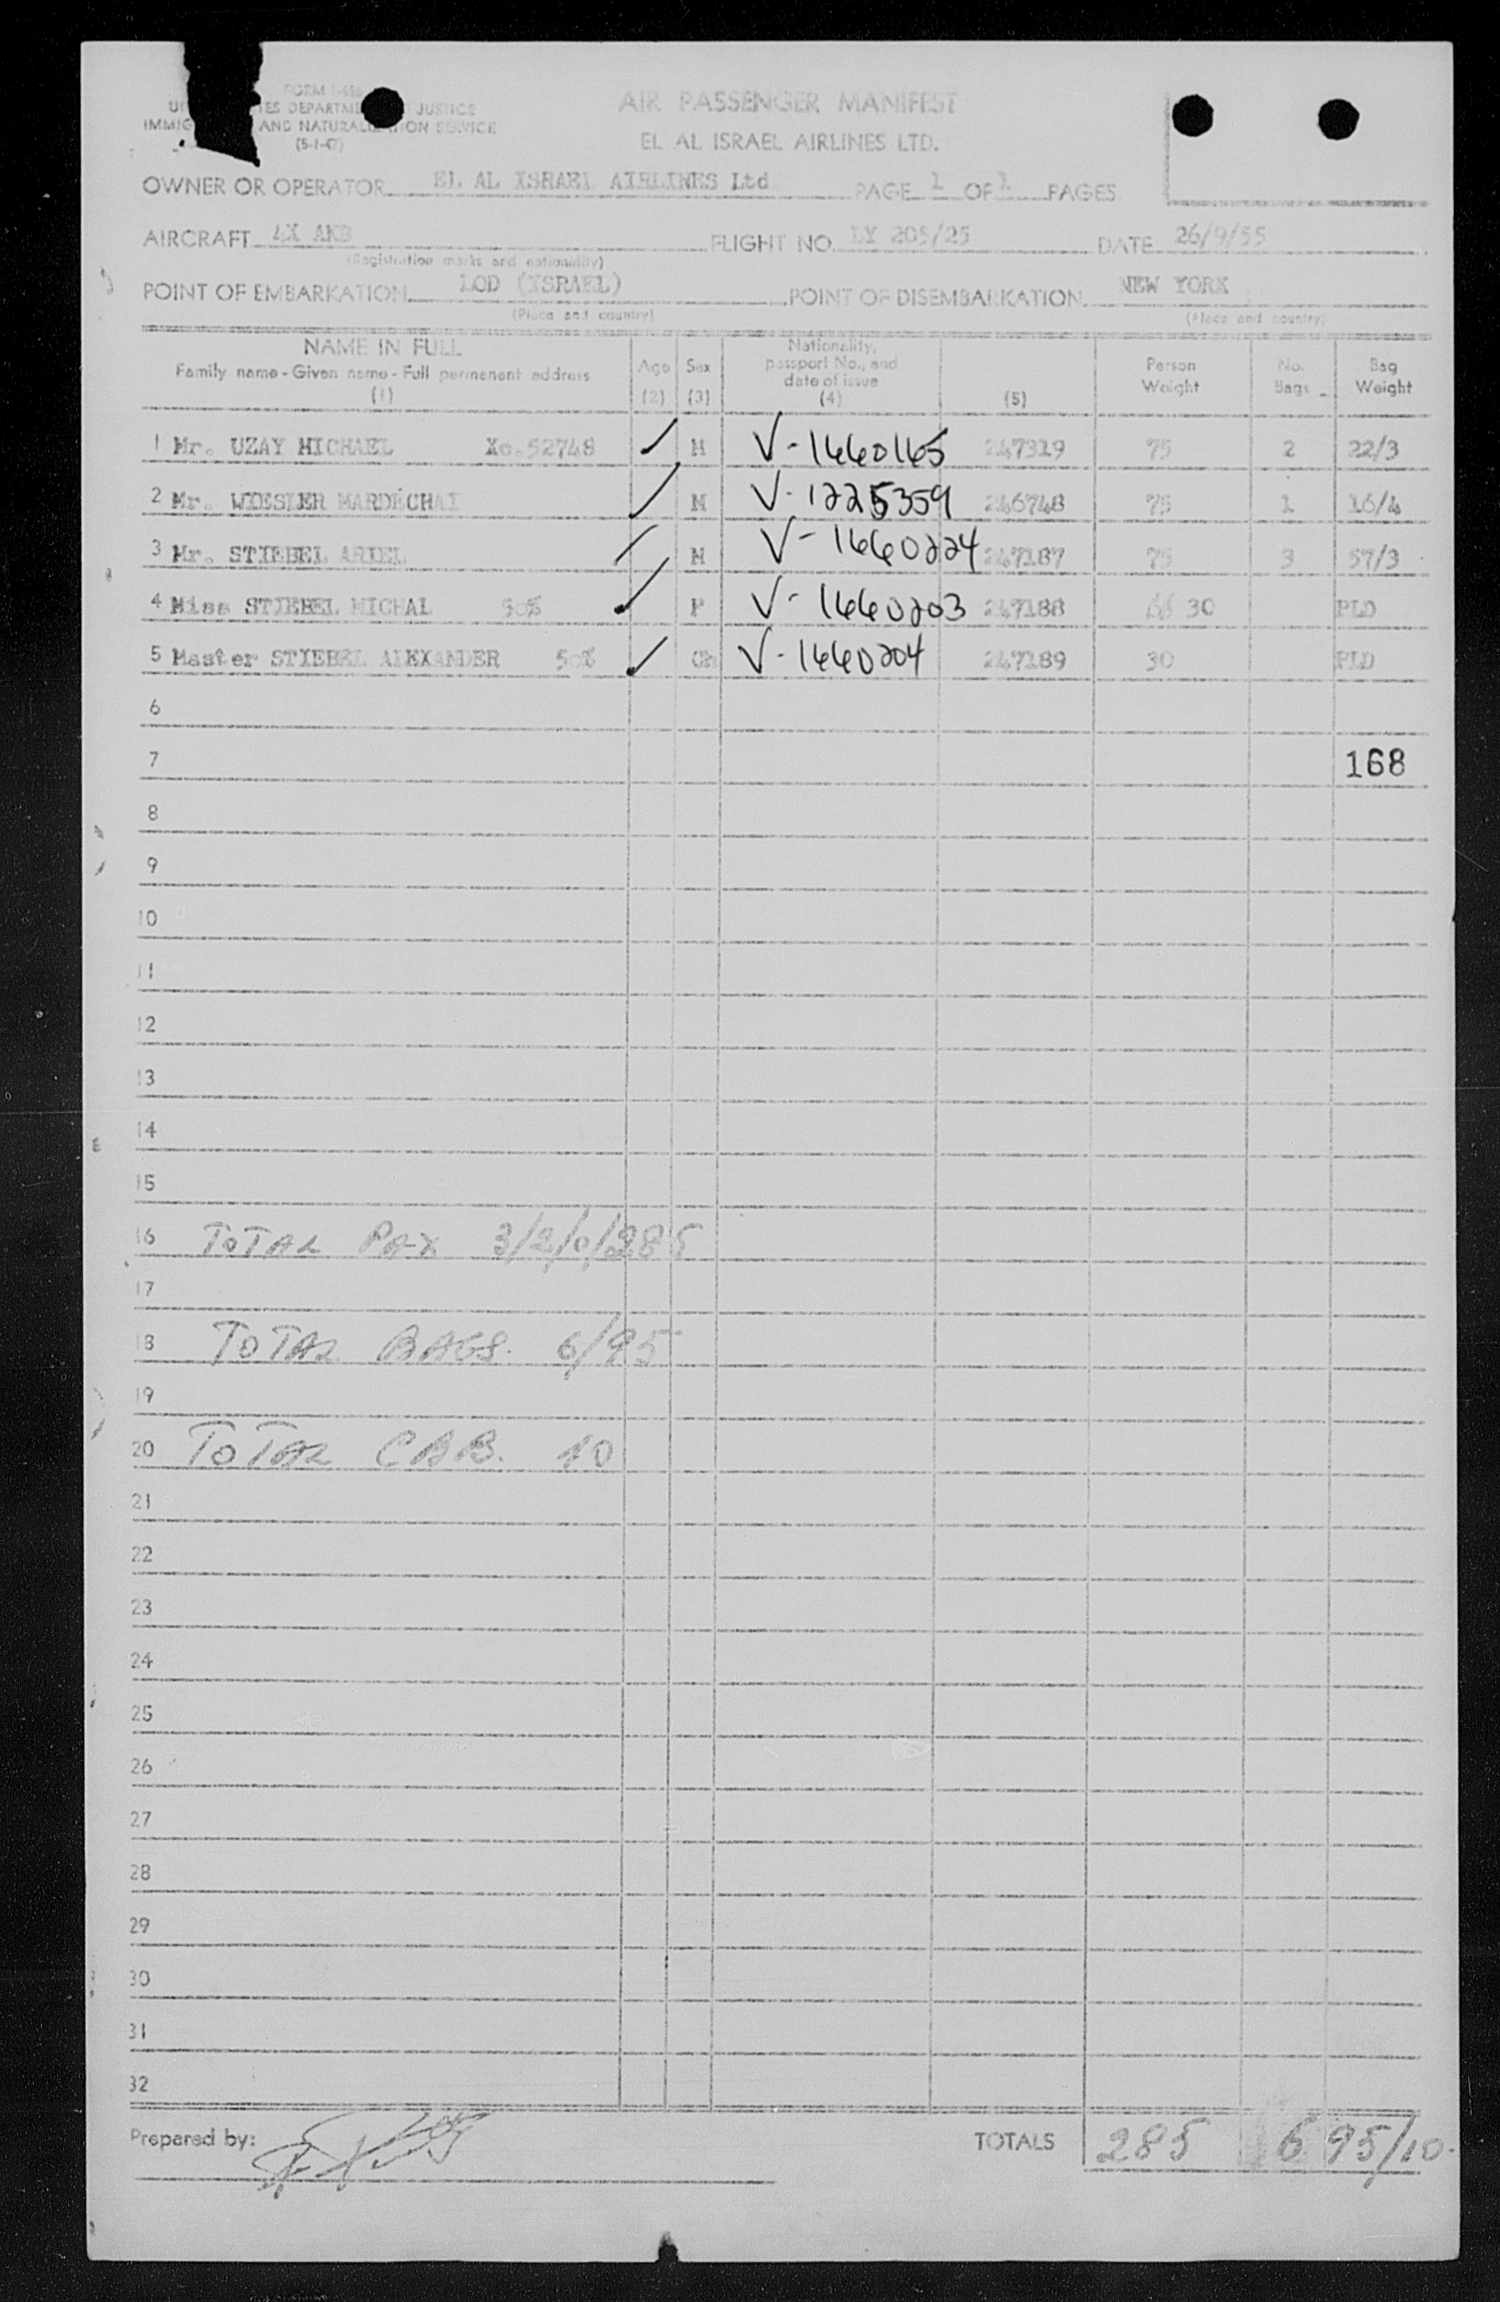 FORM I-466
UNITED STATES DEPARTMENT OF JUSTICE
IMMIGRATION AND NATURALIZATION SERVICE
AIR PASSENGER MANIFEST
EL AL ISRAEL AIRLINES LTD.
OWNER OR OPERATOR EL AL ISRAEL AIRLINES Ltd PAGE 1 OF 1 PAGES
AIRCRAFT 4X AKB FLIGHT NO. LY 205/25 DATE 26/9/55
(Registration marks and nationality)
POINT OF EMBARKATION LOD (ISRAEL) POINT OF DISEMBARKATION NEW YORK
(Place and country) (Place and country)
NAME IN FULL
Family name - Given name - Full permanent address
(1)
Age
(2)
Sex
(3)
Nationality,
passport No., and
date of issue
(4)
(5)
Person
Weight
No.
Bags
Bag
Weight
1 Mr. UZAY MICHAEL Xo.52748 M V-1660165 247319 75 2 22/3
2 Mr. WIESLER MARDECHAI M V-1225359 246748 75 1 16/4
3 Mr. STIEBEL ARIEL M V-1660224 247187 75 3 57/3
4 Miss STIEBEL MICHAL 50% F V-1660203 247188 30 PLD
5 Master STIEBEL ALEXANDER 50% Ch V-1660204 247189 30 PLD
6
7 168
8
9
10
11
12
13
14
15
16 TOTAL PAX 3/2/0/285
17
18 TOTAL BAGS. 6/95
19
20 TOTAL CAB. 10
21
22
23
24
25
26
27
28
29
30
31
32
Prepared by: TOTALS 285 6 95/10